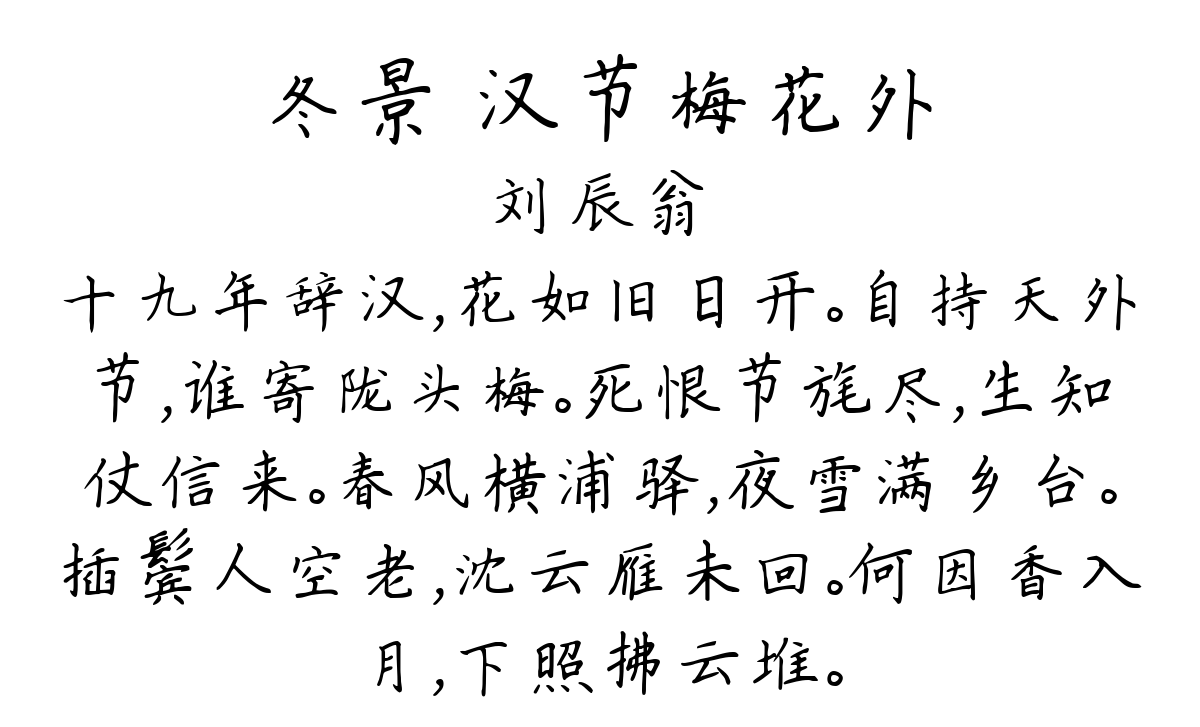 冬景 汉节梅花外
刘辰翁
十九年辞汉,花如旧日开。自持天外
节,谁寄陇头梅。死恨节旄尽,生知
仗信来。春风横浦驿,夜雪满乡台。
插鬓人空老,沈云雁未回。何因香入
月,下照拂云堆。